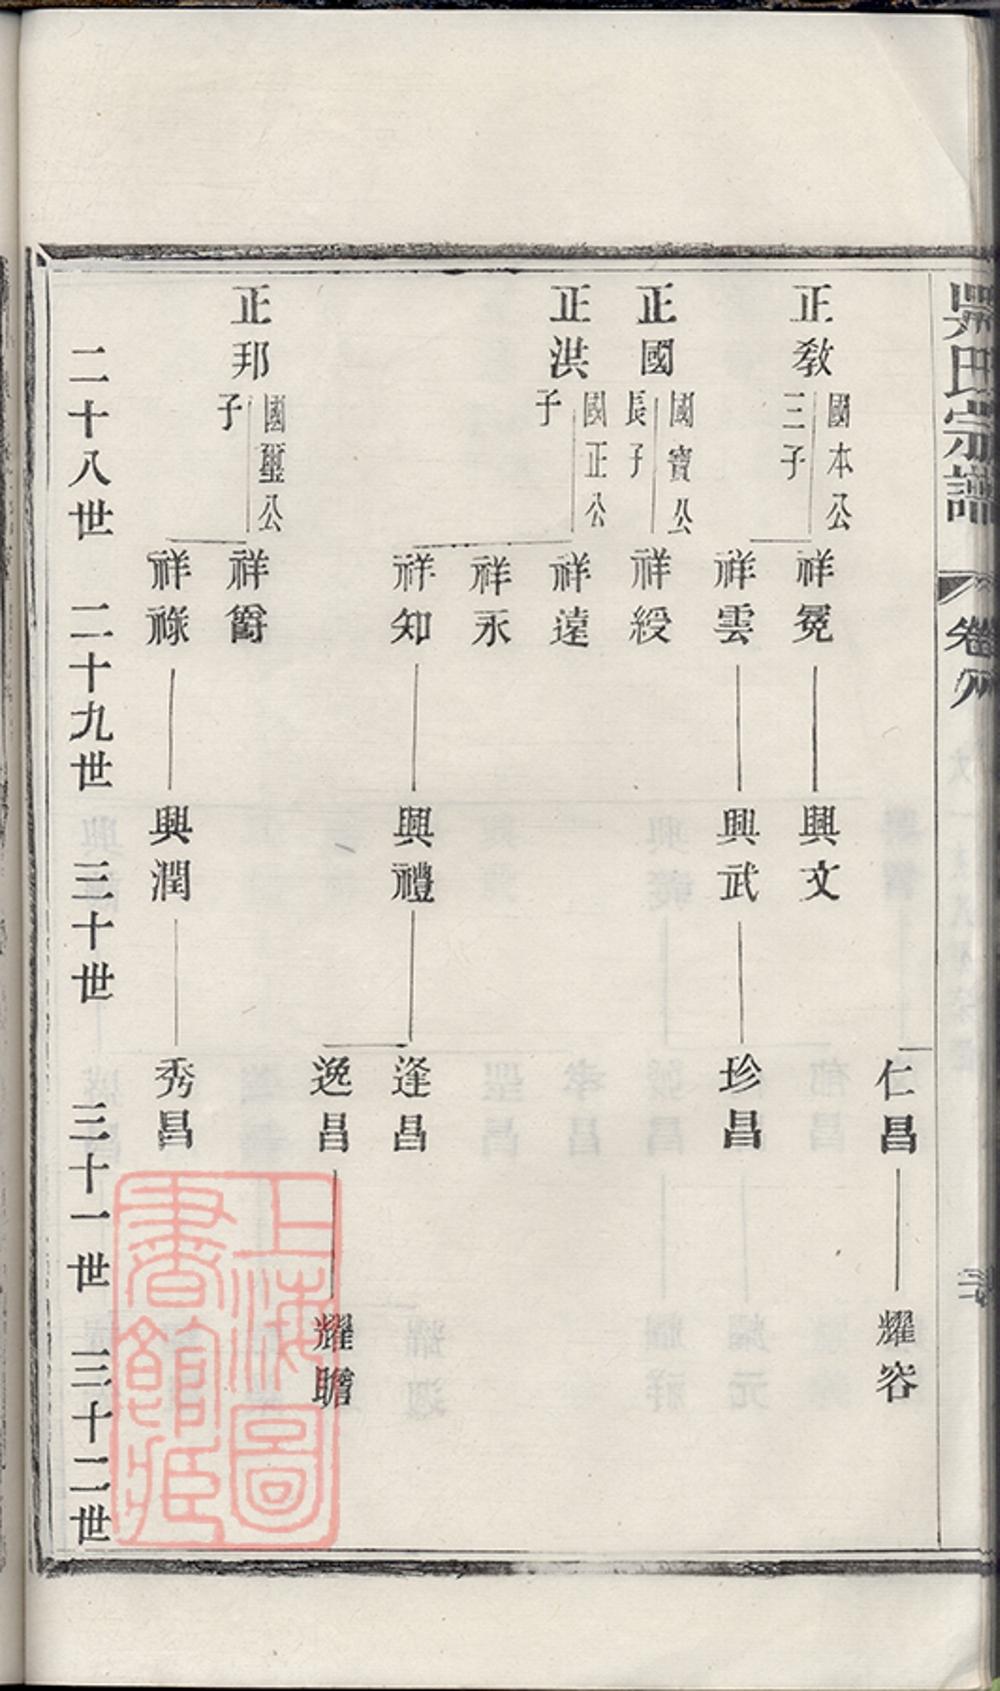 吳氏宗譜
卷八
仁昌
耀容
正教
國本公
三子
祥冕
興文
祥雲
興武
珍昌
正國
國寶公
長子
祥綬
正洪
國正公
子
祥遠
祥永
祥知
興禮
逢昌
逸昌
耀瞻
正邦
國璽公
子
祥爵
祥祿
興潤
秀昌
二十八世
二十九世
三十世
三十一世
三十二世
上海圖
書館藏